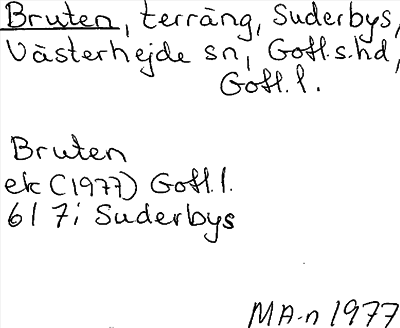 Bruten, terräng, Suderbys,
Västerhejde sn, Gotl.s.hd,
Gotl.l.
Bruten
ek (1977) Gotl.l.
6I 7i Suderbys
MA-n 1977